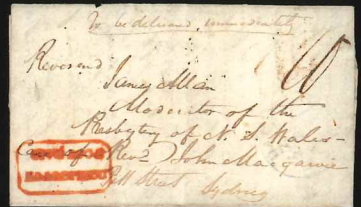 To be delivered immediately
Reverend
James Allan
Moderator of the
Presbytery of N. S. Wales
Care of Revd John Macgarvie
Pitt Street Sydney